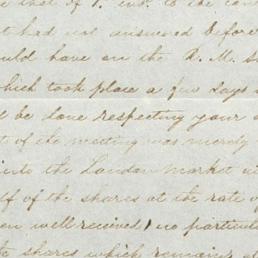 the that of 1. inst. to the
had not answered before
ould have on the R. M. S
which took place a few days
be done respecting your
of the meeting was merely
into the London market
lf of the shares at the rate of
en well received, no particul
shares which remains at